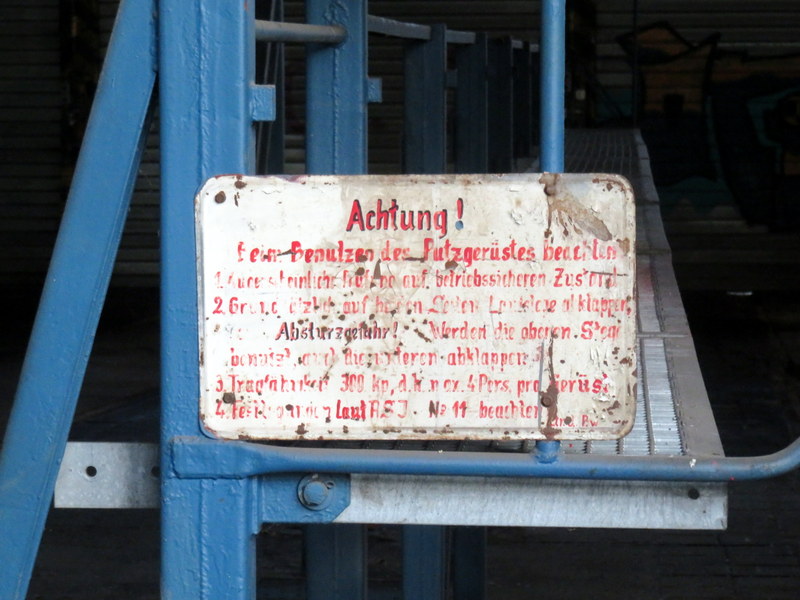 Achtung!
Beim Benutzen des Putzgerüstes beachten
1. auf betriebssicheren Zustand
2. auf beiden Seiten abklappen,
Absturzgefahr! Werden die oberen Stege
benutzt, auch die unteren abklappen
3. Tragfähigkeit 300 kp, d.h. max. 4 Pers. pro Gerüst
4. laut A.S.J. № 11 beachten